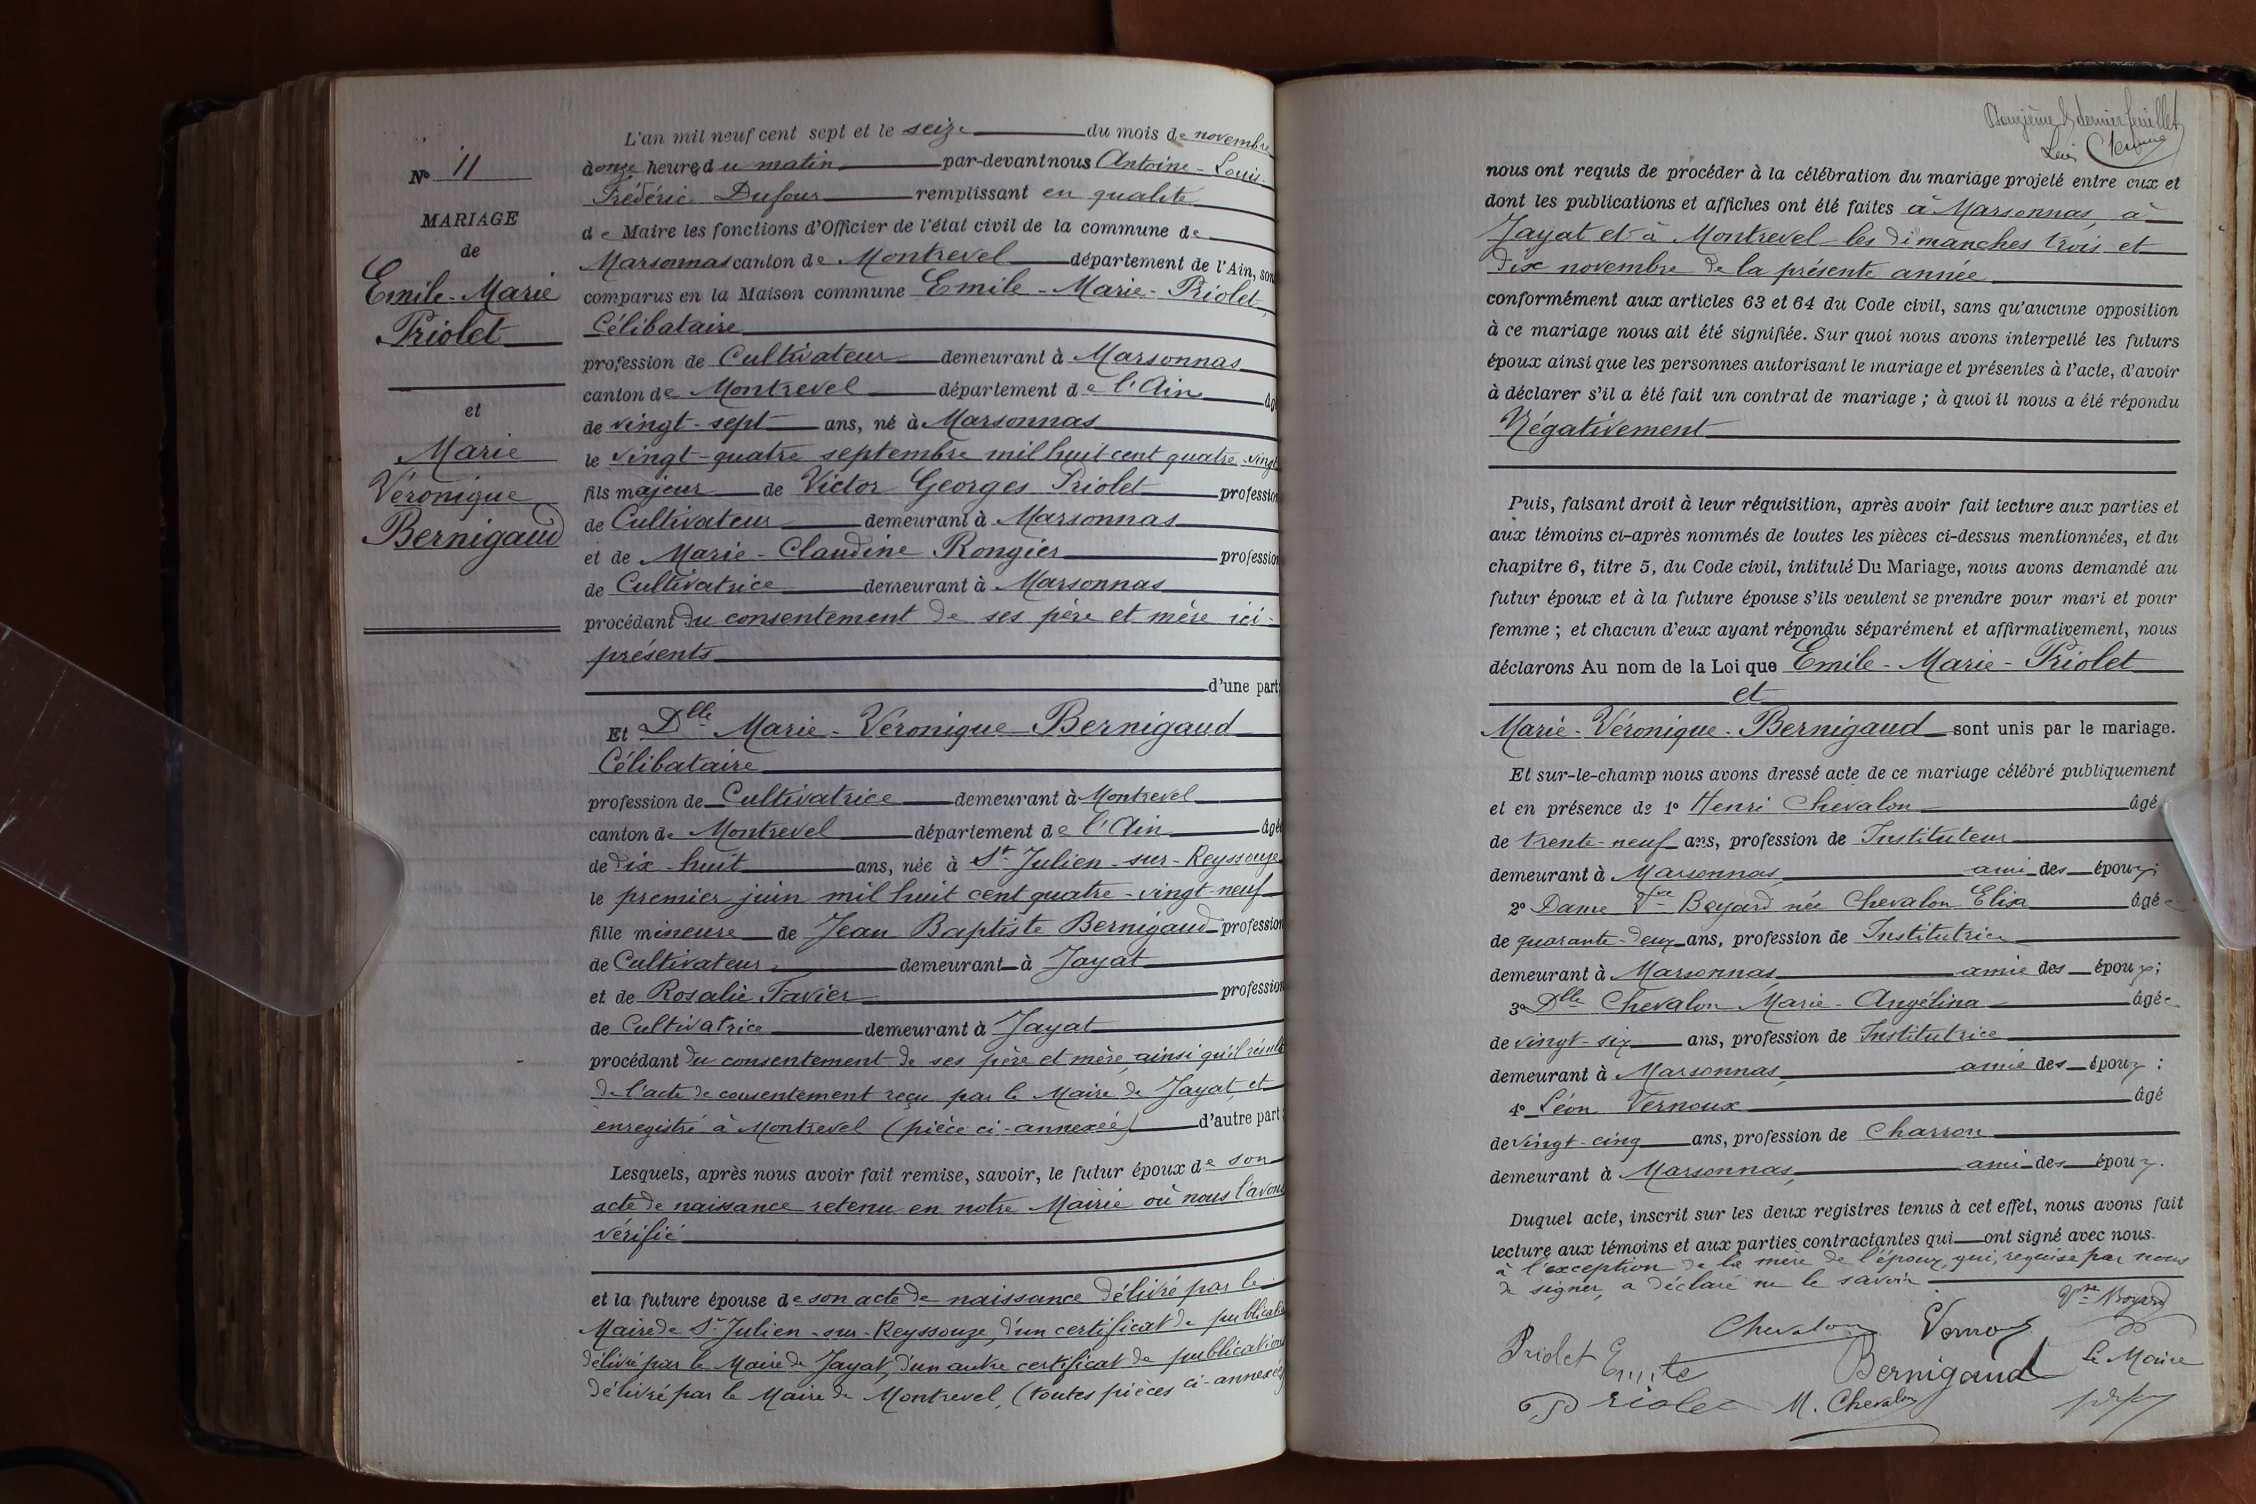 N° 11
MARIAGE
de
Emile-Marie
Priolet
et
Marie
Véronique
Bernigaud
L'an mil neuf cent sept et le seize du mois de novembre
à onze heures du matin par-devant nous Antoine-Louis-
Frédéric Dufour remplissant en qualité
de Maire les fonctions d'Officier de l'état civil de la commune de
Marsonnas canton de Montrevel département de l'Ain, sont
comparus en la Maison commune Emile-Marie-Priolet,
Célibataire
profession de Cultivateur demeurant à Marsonnas
canton de Montrevel département de l'Ain âgé
de vingt-sept ans, né à Marsonnas
le vingt-quatre septembre mil huit cent quatre vingt
fils majeur de Victor Georges Priolet profession
de Cultivateur demeurant à Marsonnas
et de Marie-Claudine Rongier profession
de Cultivatrice demeurant à Marsonnas
procédant du consentement de ses père et mère ici-
présents
d'une part;
Et Dlle Marie-Véronique Bernigaud
Célibataire
profession de Cultivatrice demeurant à Montrevel
canton de Montrevel département de l'Ain âgée
de dix-huit ans, née à St-Julien-sur-Reyssouze
le premier juin mil huit cent quatre-vingt-neuf
fille mineure de Jean Baptiste Bernigaud profession
de Cultivateur demeurant à Jayat
et de Rosalie Favier profession
de Cultivatrice demeurant à Jayat
procédant du consentement de ses père et mère, ainsi qu'il résulte
de l'acte de consentement reçu par le Maire de Jayat, et
enregistré à Montrevel (pièce ci-annexée) d'autre part;
Lesquels, après nous avoir fait remise, savoir, le futur époux de son
acte de naissance retenu en notre Mairie où nous l'avons
vérifié
et la future épouse de son acte de naissance délivré par le
Maire de St-Julien-sur-Reyssouze, d'un certificat de publication
délivré par le Maire de Jayat, d'un autre certificat de publication
délivré par le Maire de Montrevel, (toutes pièces ci-annexées)
Douzième & dernier feuillet
nous ont requis de procéder à la célébration du mariage projeté entre eux et
dont les publications et affiches ont été faites à Marsonnas, à
Jayat et à Montrevel les dimanches trois et
dix novembre de la présente année
conformément aux articles 63 et 64 du Code civil, sans qu'aucune opposition
à ce mariage nous ait été signifiée. Sur quoi nous avons interpellé les futurs
époux ainsi que les personnes autorisant le mariage et présentes à l'acte, d'avoir
à déclarer s'il a été fait un contrat de mariage; à quoi il nous a été répondu
Négativement
Puis, faisant droit à leur réquisition, après avoir fait lecture aux parties et
aux témoins ci-après nommés de toutes les pièces ci-dessus mentionnées, et du
chapitre 6, titre 5, du Code civil, intitulé Du Mariage, nous avons demandé au
futur époux et à la future épouse s'ils veulent se prendre pour mari et pour
femme; et chacun d'eux ayant répondu séparément et affirmativement, nous
déclarons Au nom de la Loi que Emile-Marie-Priolet
et
Marie-Véronique-Bernigaud sont unis par le mariage.
Et sur-le-champ nous avons dressé acte de ce mariage célébré publiquement
et en présence de 1° Henri Chevalon âgé
de trente-neuf ans, profession de Instituteur
demeurant à Marsonnas, ami des époux;
2° Dame Vve Boyard née Chevalon Elisa âgée
de quarante-deux ans, profession de Institutrice
demeurant à Marsonnas, amie des époux;
3° Dlle Chevalon Marie-Angélina âgée
de vingt-six ans, profession de Institutrice
demeurant à Marsonnas, amie des époux;
4° Léon Vernoux âgé
de vingt-cinq ans, profession de Charron
demeurant à Marsonnas, ami des époux.
Duquel acte, inscrit sur les deux registres tenus à cet effet, nous avons fait
lecture aux témoins et aux parties contractantes qui ont signé avec nous.
à l'exception de la mère de l'époux, qui, requise par nous
de signer, a déclaré ne le savoir
Vve Boyard
Chevalon Vernoux
Priolet Emile Bernigaud Le Maire
Priolet M. Chevalon